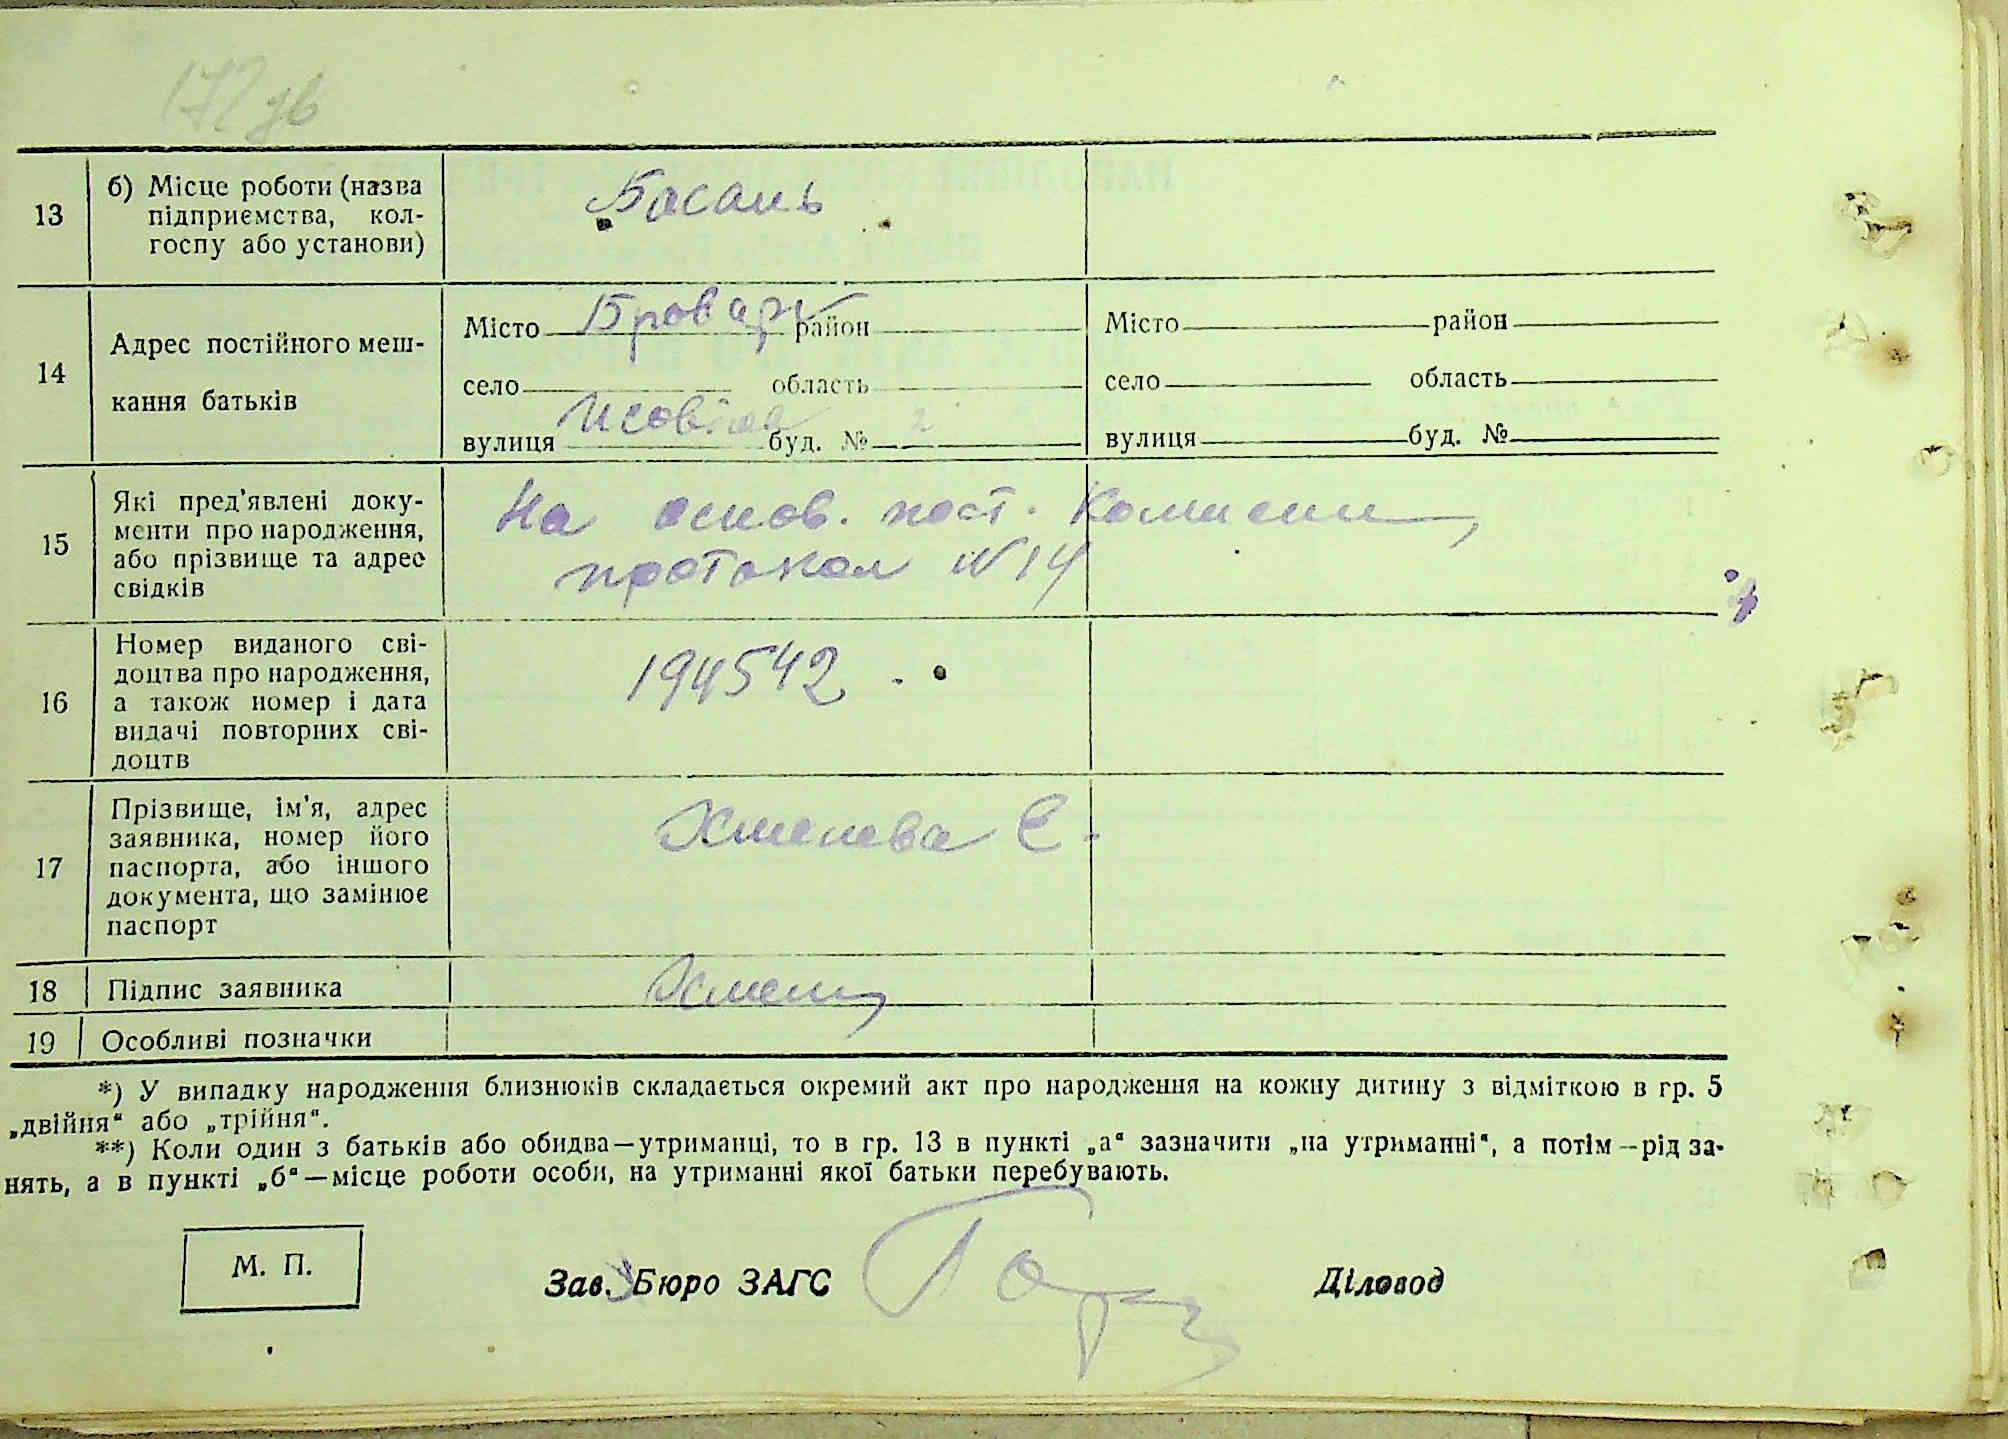 172 зв
13
б) Місце роботи (назва
підприємства, кол-
госпу або установи)
Басань
14
Адрес постійного меш-
кання батьків
Місто Бровари район
село область
вулиця буд. № 2
Місто район
село область
вулиця буд. №
15
Які пред'явлені доку-
менти про народження,
або прізвище та адрес
свідків
На основ. пост. Комисии
протокол N 14
16
Номер виданого сві-
доцтва про народження,
а також номер і дата
видачі повторних сві-
доцтв
194542
17
Прізвище, ім'я, адрес
заявника, номер його
паспорта, або іншого
документа, що замінює
паспорт
Хмелева Є
18
Підпис заявника
19
Особливі позначки
*) У випадку народження близнюків складається окремий акт про народження на кожну дитину з відміткою в гр. 5
„двійня“ або „трійня“.
**) Коли один з батьків або обидва—утриманці, то в гр. 13 в пункті „а“ зазначити „на утриманні“, а потім—рід за-
нять, а в пункті „б“—місце роботи особи, на утриманні якої батьки перебувають.
М. П.
Зав. Бюро ЗАГС
Діловод